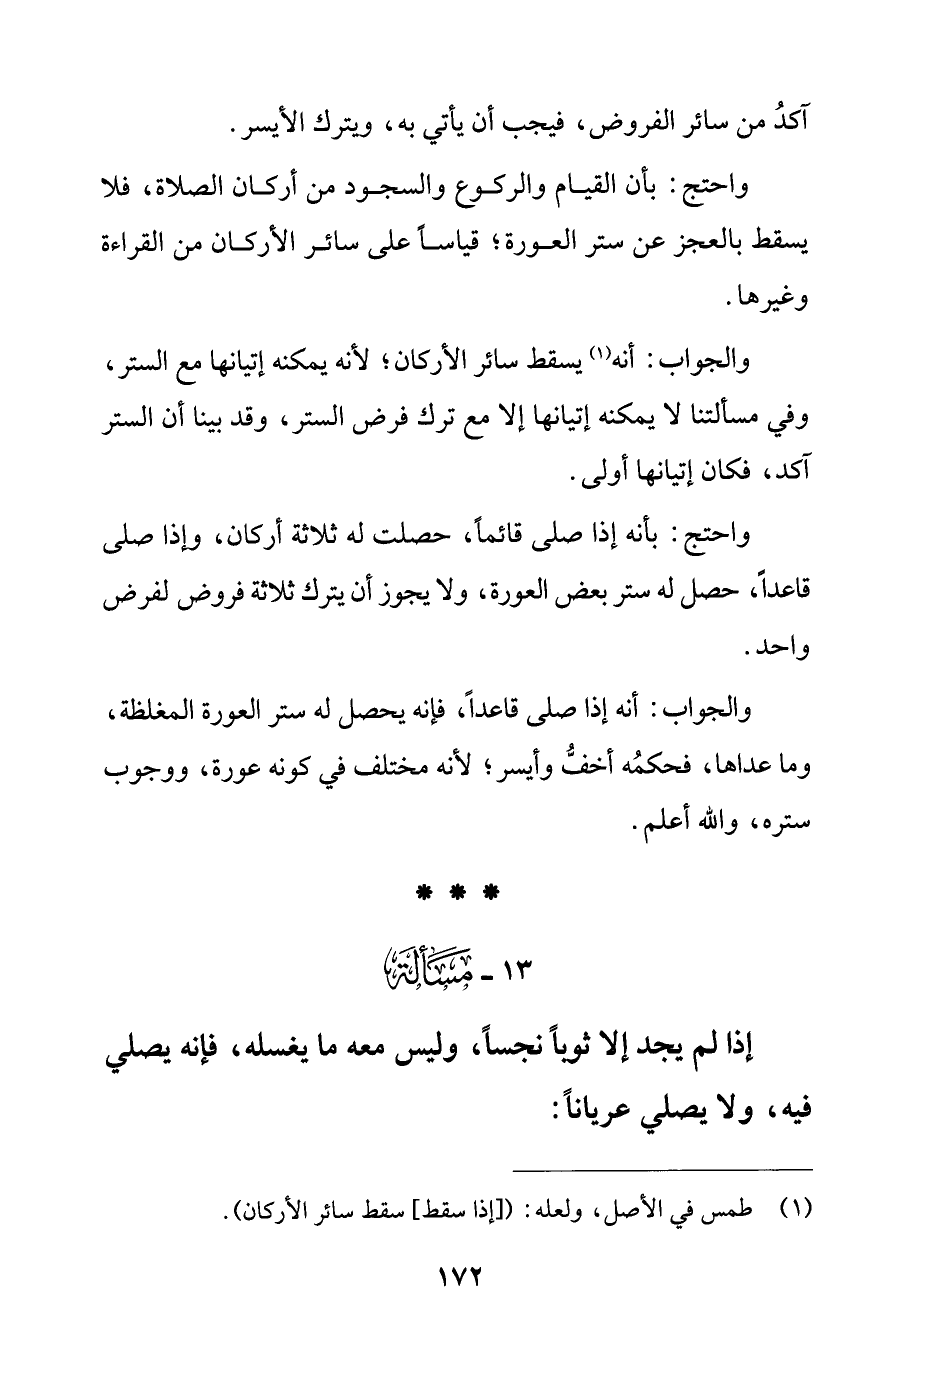 آكدُ من سائر الفروض، فيجب أن يأتي به، ويترك الأيسر.
واحتج: بأن القيام والركوع والسجود من أركان الصلاة، فلا
يسقط بالعجز عن ستر العورة؛ قياساً على سائر الأركان من القراءة
وغيرها.
والجواب: أنه(١) يسقط سائر الأركان؛ لأنه يمكنه إتيانها مع الستر،
وفي مسألتنا لا يمكنه إتيانها إلا مع ترك فرض الستر، وقد بينا أن الستر
آكد، فكان إتيانها أولى.
واحتج: بأنه إذا صلى قائماً، حصلت له ثلاثة أركان، وإذا صلى
قاعداً، حصل له ستر بعض العورة، ولا يجوز أن يترك ثلاثة فروض لفرض
واحد.
والجواب: أنه إذا صلى قاعداً، فإنه يحصل له ستر العورة المغلظة،
وما عداها، فحكمُه أخفُّ وأيسر؛ لأنه مختلف في كونه عورة، ووجوب
ستره، والله أعلم.
* * *
١٣ - مَسْأَلَة
إذا لم يجد إلا ثوباً نجساً، وليس معه ما يغسله، فإنه يصلي
فيه، ولا يصلي عرياناً:
(١) طمس في الأصل، ولعله: ([إذا سقط] سقط سائر الأركان).
١٧٢